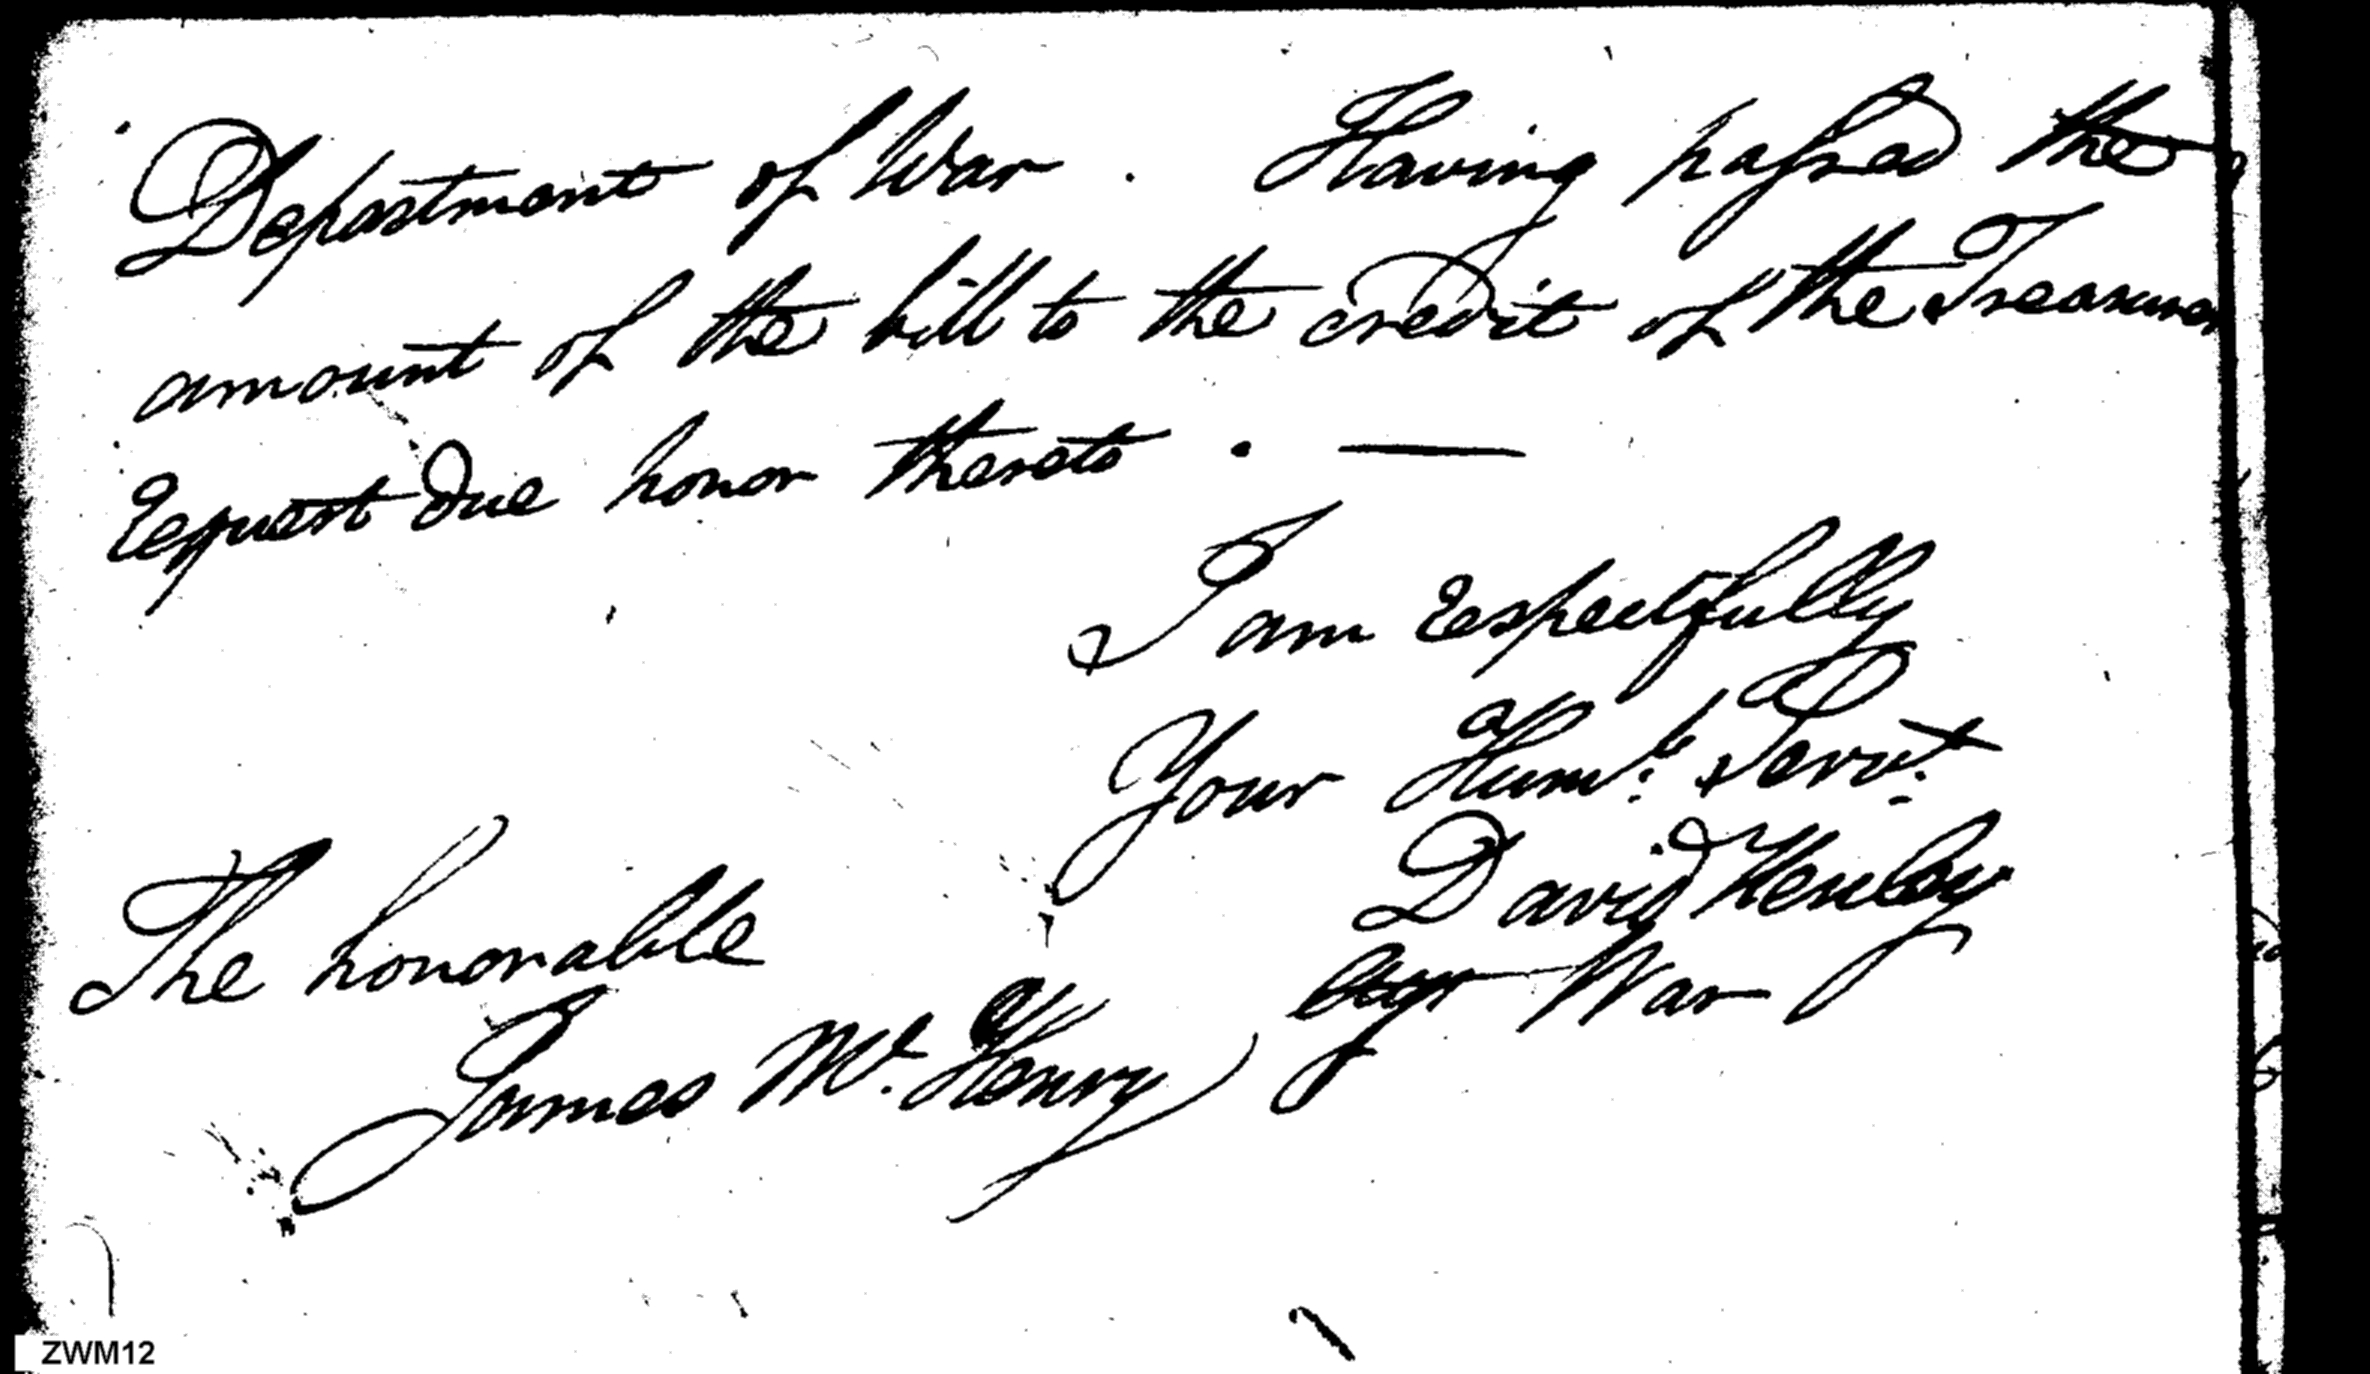 Department of War. Having passed the
amount of the bill to the credit of the Treasurer
request due honor thereto. —
I am respectfully
Your Humb. Servt.
David Henley
Agt War
The honorable
James Mc.Henry
ZWM12